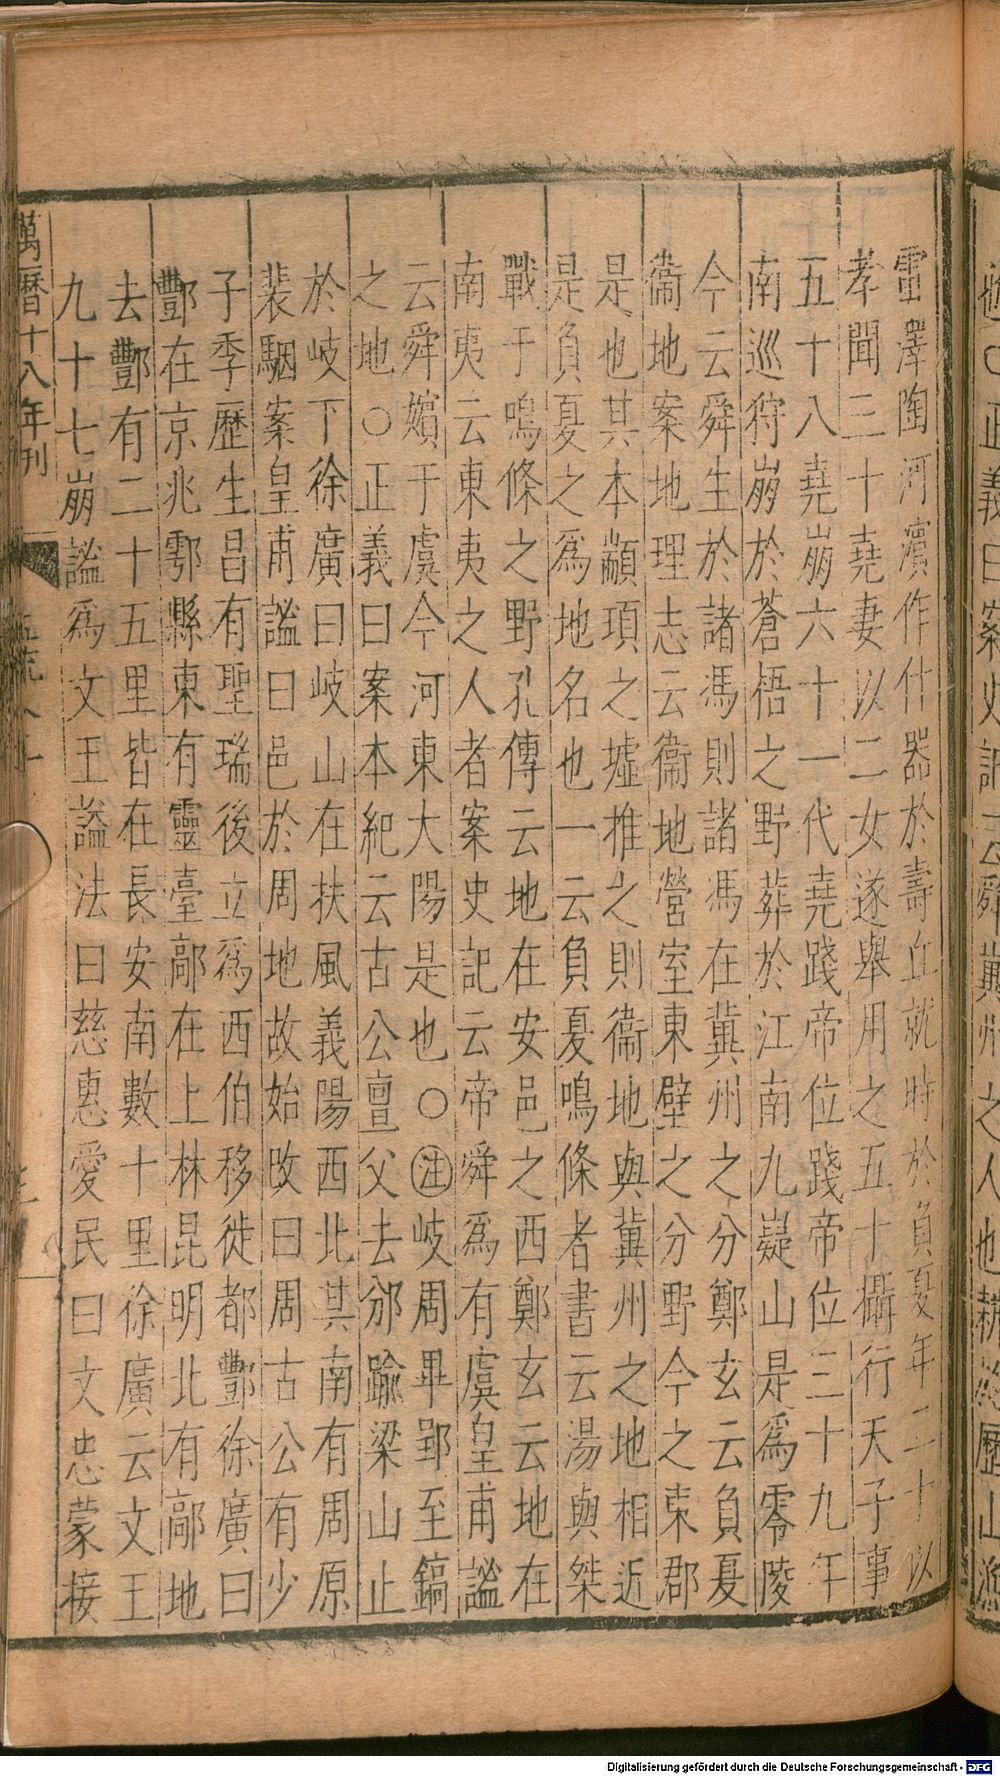 雷澤陶河濱作什器於壽丘就時於負夏年二十以
孝聞三十堯妻以二女遂舉用之五十攝行天子事
五十八堯崩六十一代堯踐帝位踐帝位三十九年
南巡狩崩於蒼梧之野葬於江南九嶷山是爲零陵
今云舜生於諸馮則諸馮在冀州之分鄭玄云負夏
衞地案地理志云衞地營室東壁之分野今之東郡
是也其本顓頊之墟推之則衞地與冀州之地相近
是負夏之爲地名也一云負夏鳴條者書云湯與桀
戰于鳴條之野孔傳云地在安邑之西鄭玄云地在
南夷云東夷之人者案史記云帝舜爲有虞皇甫謐
云舜嬪于虞今河東大陽是也○注岐周畢郢至鎬
之地○正義曰案本紀云古公亶父去邠踰梁山止
於岐下徐廣曰岐山在扶風義陽西北其南有周原
裴駰案皇甫謐曰邑於周地故始改曰周古公有少
子季歷生昌有聖瑞後立爲西伯移徙都酆徐廣曰
酆在京兆鄠縣東有靈臺鄗在上林昆明北有鄗地
去酆有二十五里皆在長安南數十里徐廣云文王
九十七崩謚爲文王謚法曰慈惠愛民曰文忠蒙接
萬曆十八年刊
正義曰案史記云舜冀州之人也耕於歷山漁
Digitalisierung gefördert durch die Deutsche Forschungsgemeinschaft - DFG